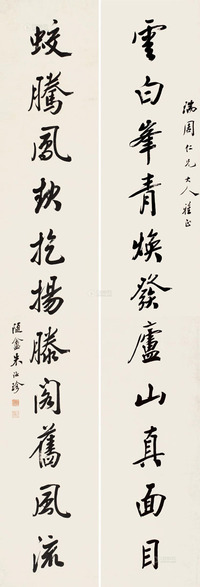 滿周仁兄大人雅正
雲白峯青煥發廬山真面目
蛟騰鳳扢揚滕閣舊風流
朱汝珍